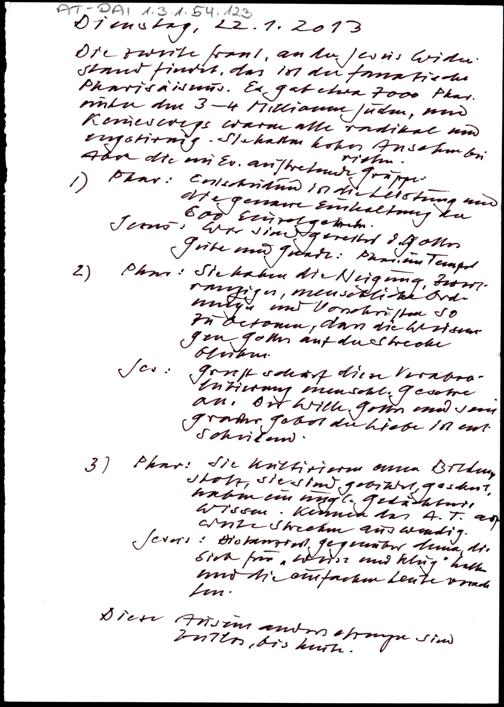 AT-DA1 1.3.1.54.123
Dienstag, 22.1.2013
Die zweite Front, an der Jesus Wider-
stand findet, das ist der fanatische
Pharisäismus. Es gab etwa 7000 Phar.
unter den 3-4 Millionen Juden, und
Keineswegs waren alle radikal und
engstirnig. Sie hatten hohes Ansehen bei
Aber die im Ev. auftretende Gruppe
1) Phar: Entscheidend ist die Leistung und
die genaue Einhaltung der
600 Einzelgebote.
Jesus: Wir sind gerettet d. Gottes
Güte und Gnade: Phar. im Tempel
2) Phar: Sie haben die Neigung, zweit-
rangiges, menschliche Ord-
nungen und Vorschriften so
zu betonen, dass die Weisun-
gen Gottes auf der Strecke
bleiben.
Jes: greift scharf diese Verabso-
lutierung menschl. Gesetze
an. Der Wille Gottes und sein
großes Gebot der Liebe ist ent-
scheidend.
3) Phar: Sie kultivieren einen Bildungs
stolz, sie sind gebildet, geschult,
haben ein ungl. Gedächtnis
Wissen. Kennen das A.T. auf
weite Strecken auswendig.
Jesus: Distanziert gegenüber denen, die
sich für "weise und klug" halten
und die einfachen Leute verach-
ten.
Diese Auseinandersetzungen sind
zeitlos, bis heute.